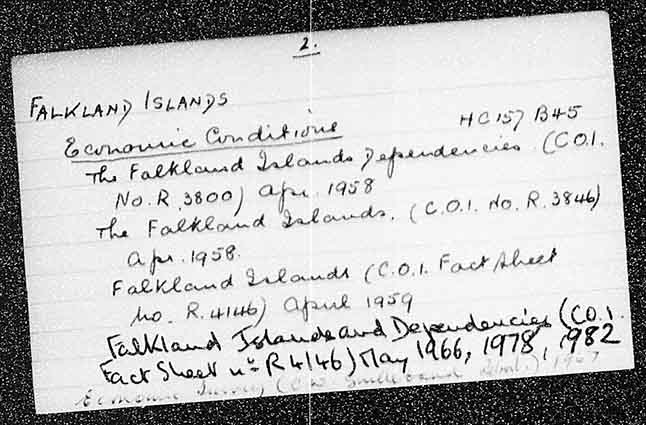 2.
FALKLAND ISLANDS
Economic Conditions HC157 B45
The Falkland Islands Dependencies (C.O.I.
No. R. 3800) Apr. 1958
The Falkland Islands. (C.O.I. No. R. 3846)
Apr. 1958.
Falkland Islands (C.O.I. Fact Sheet
No. R. 4146) April 1959
Falkland Islands and Dependencies (C.O.I.
Fact Sheet nº R 4146) May 1966, 1978, 1982
Economic Survey (C.W. Guillebaud 1967